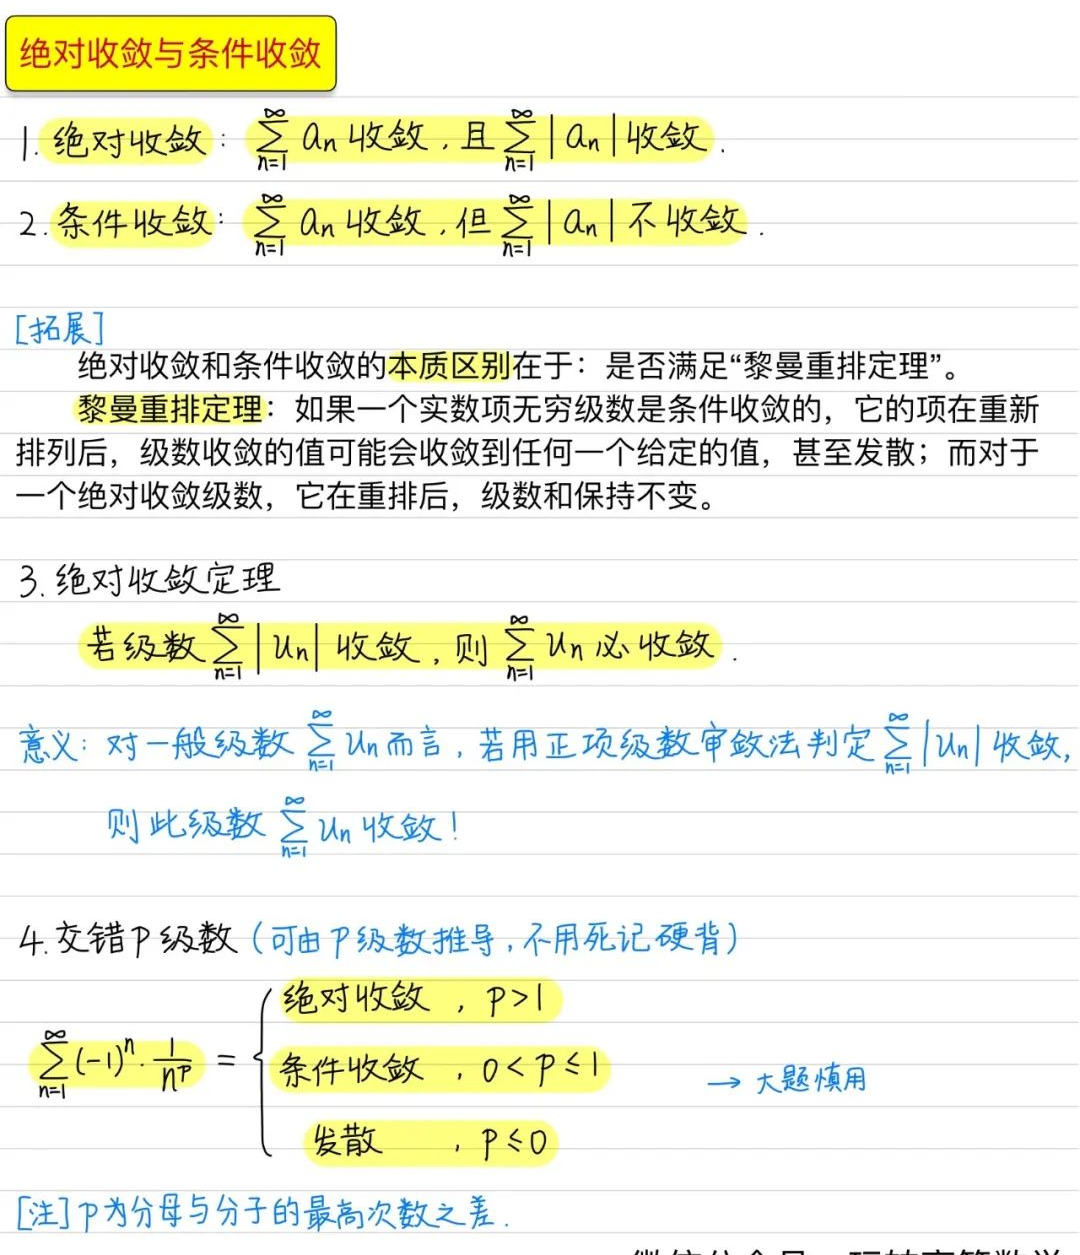 绝对收敛与条件收敛
1. 绝对收敛: ∑_{n=1}^{∞} aₙ 收敛, 且 ∑_{n=1}^{∞} |aₙ| 收敛.
2. 条件收敛: ∑_{n=1}^{∞} aₙ 收敛, 但 ∑_{n=1}^{∞} |aₙ| 不收敛.
[拓展]
绝对收敛和条件收敛的本质区别在于：是否满足“黎曼重排定理”。
黎曼重排定理：如果一个实数项无穷级数是条件收敛的，它的项在重新
排列后，级数收敛的值可能会收敛到任何一个给定的值，甚至发散；而对于
一个绝对收敛级数，它在重排后，级数和保持不变。
3. 绝对收敛定理
若级数 ∑_{n=1}^{∞} |uₙ| 收敛, 则 ∑_{n=1}^{∞} uₙ 必收敛.
意义: 对一般级数 ∑_{n=1}^{∞} uₙ 而言, 若用正项级数审敛法判定 ∑_{n=1}^{∞} |uₙ| 收敛,
则此级数 ∑_{n=1}^{∞} uₙ 收敛!
4. 交错P级数 (可由P级数推导, 不用死记硬背)
绝对收敛 , p>1
∑_{n=1}^{∞} (-1)ⁿ · 1/n^p = { 条件收敛 , 0<p≤1 → 大题慎用
发散 , p≤0
[注] P为分母与分子的最高次数之差.